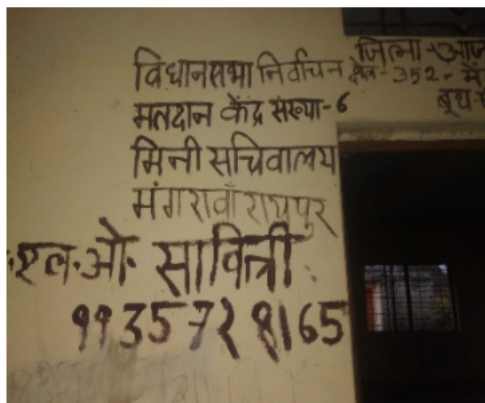 जिला आज
विधानसभा निर्वाचन क्षेत्र-352- में
मतदान केंद्र संख्या-6 बूथ
मिनी सचिवालय
मंगरावाँ रायपुर
एल.ओ. सावित्री
9935728165